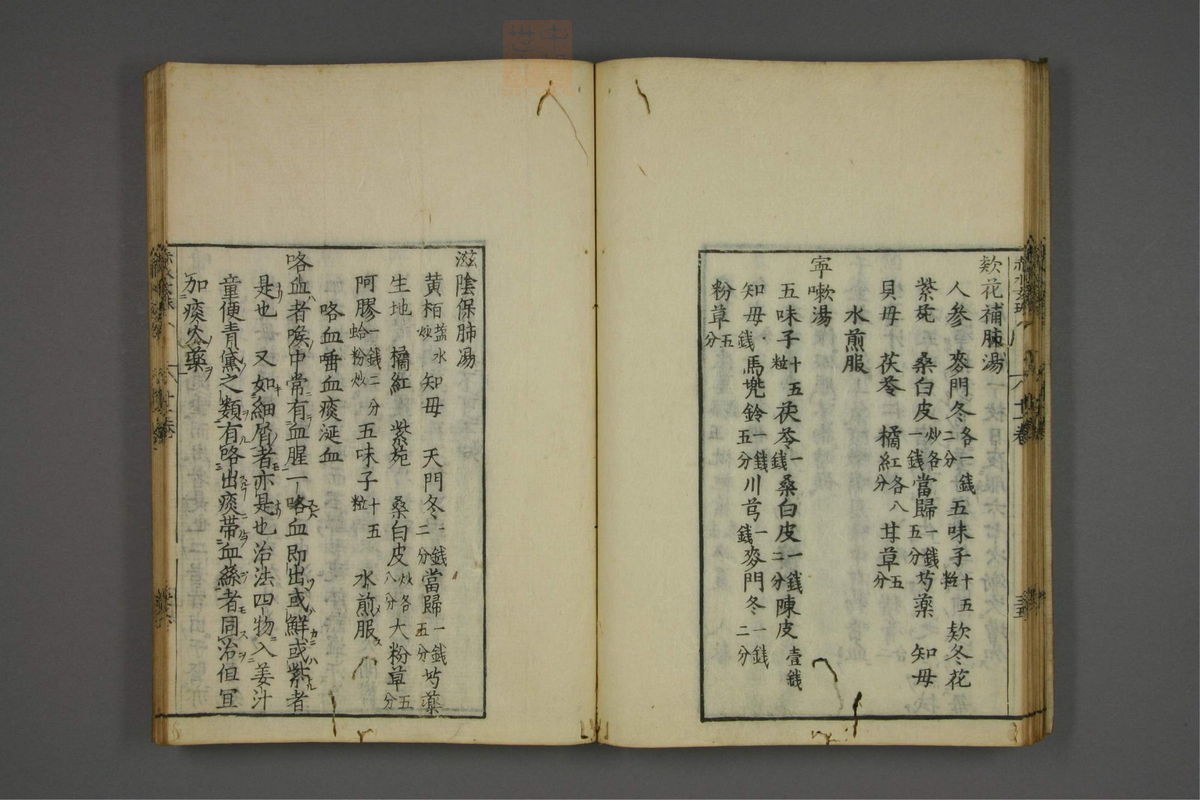 欵花補肺湯
人參 麥門冬各一錢二分 五味子十五粒 欵冬花
紫菀 桑白皮炒各一錢 當歸一錢五分 芍藥 知母
貝母 茯苓 橘紅各八分 甘草五分
水煎服
寧嗽湯
五味子十五粒 茯苓一錢 桑白皮一錢二分 陳皮壹錢
知母錢 馬兠鈴一錢五分 川芎一錢 麥門冬一錢二分
粉草五分
滋陰保肺湯
黄栢塩水炒 知母 天門冬一錢二分 當歸一錢五分 芍藥
生地 橘紅 紫菀 桑白皮炒各八分 大粉草五分
阿膠一錢二分蛤粉炒 五味子十五粒 水煎服
咯血衂血痰涎血
咯血者喉中常有血腥一咯血即出或鮮或紫者
是也 又如細屑者亦是也治法四物入姜汁
童便青黛之類有咯出痰帶血絲者同治但宜
加痰火藥